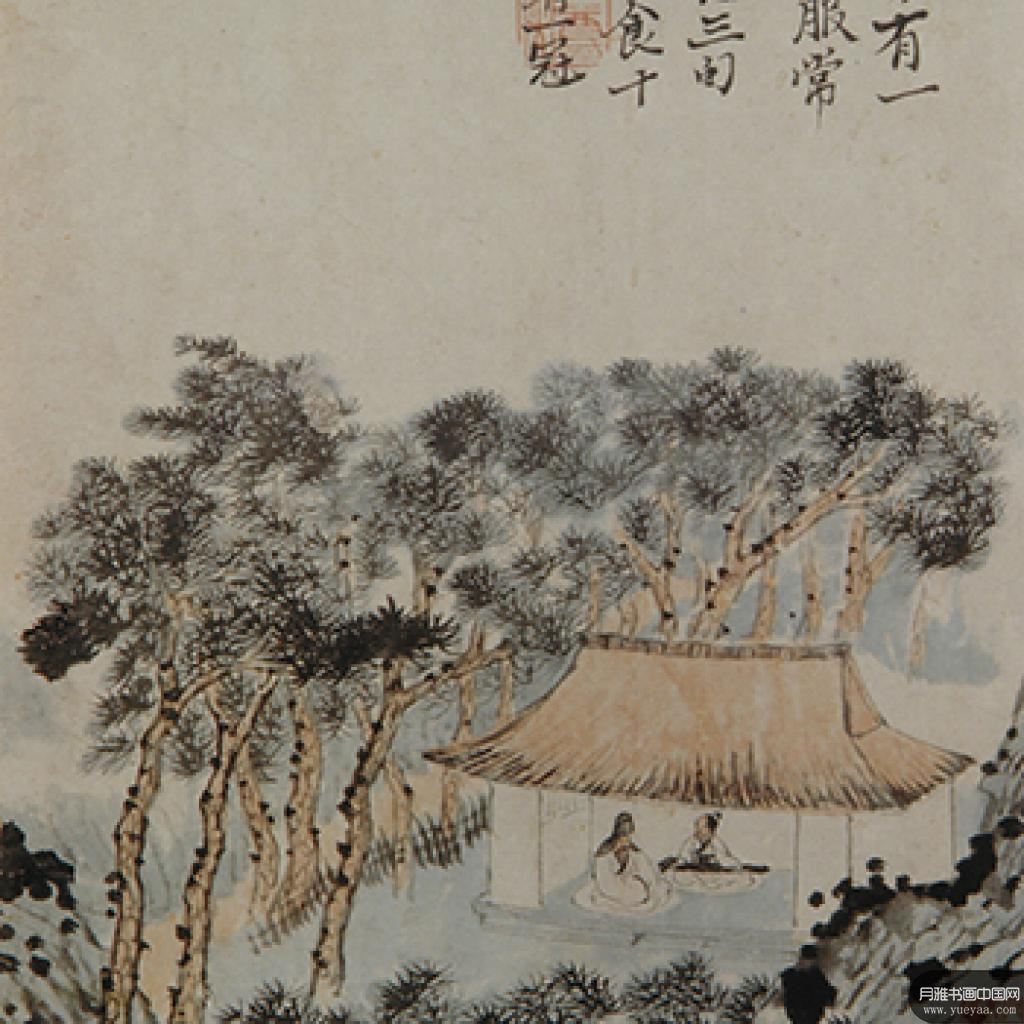 有一
服常
三旬
食十
冠
月雅书画中国网
www.yueyaa.com